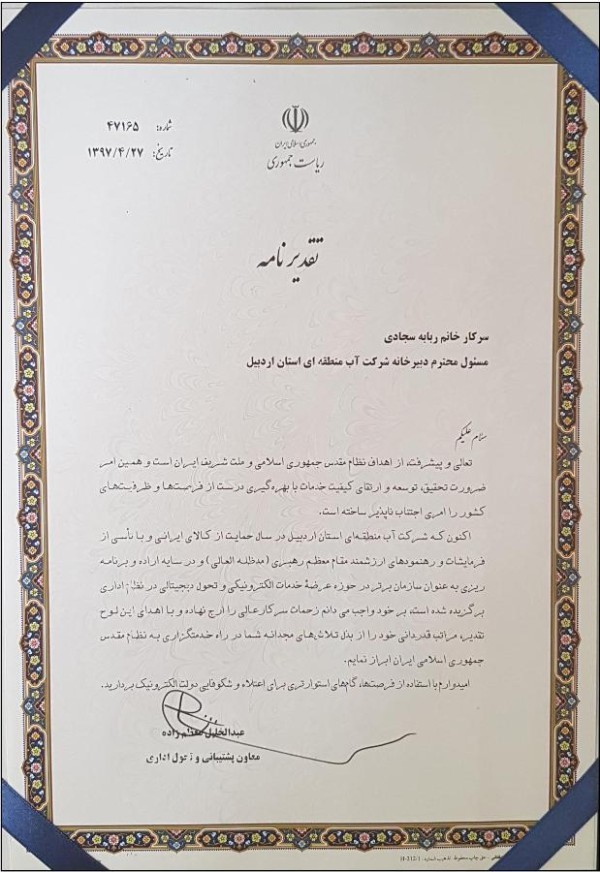 جمهوری اسلامی ایران
ریاست جمهوری
شماره: ۴۷۱۶۵
تاریخ: ۱۳۹۷/۴/۲۷
تقدیر نامه
سرکار خانم ربابه سجادی
مسئول محترم دبیرخانه شرکت آب منطقه ای استان اردبیل
سلام علیکم
تعالی و پیشرفت، از اهداف نظام مقدس جمهوری اسلامی و ملت شریف ایران است و همین امر
ضرورت تحقیق، توسعه و ارتقای کیفیت خدمات با بهره گیری درست از فرصت‌ها و ظرفیت‌های
کشور را امری اجتناب ناپذیر ساخته است.
اکنون که شرکت آب منطقه‌ای استان اردبیل در سال حمایت از کالای ایرانی و با تأسی از
فرمایشات و رهنمودهای ارزشمند مقام معظم رهبری (مدظله العالی) و در سایه اراده و برنامه
ریزی به عنوان سازمان برتر در حوزه عرضهٔ خدمات الکترونیکی و تحول دیجیتالی در نظام اداری
برگزیده شده است، بر خود واجب می دانم زحمات سرکارعالی را ارج نهاده و با اهدای این لوح
تقدیر، مراتب قدردانی خود را از بذل تلاش‌های مجدانه شما در راه خدمتگزاری به نظام مقدس
جمهوری اسلامی ایران ابراز نمایم.
امیدوارم با استفاده از فرصت‌ها، گام‌های استوارتری برای اعتلاء و شکوفایی دولت الکترونیک بردارید.
معاون پشتیبانی و تحول اداری